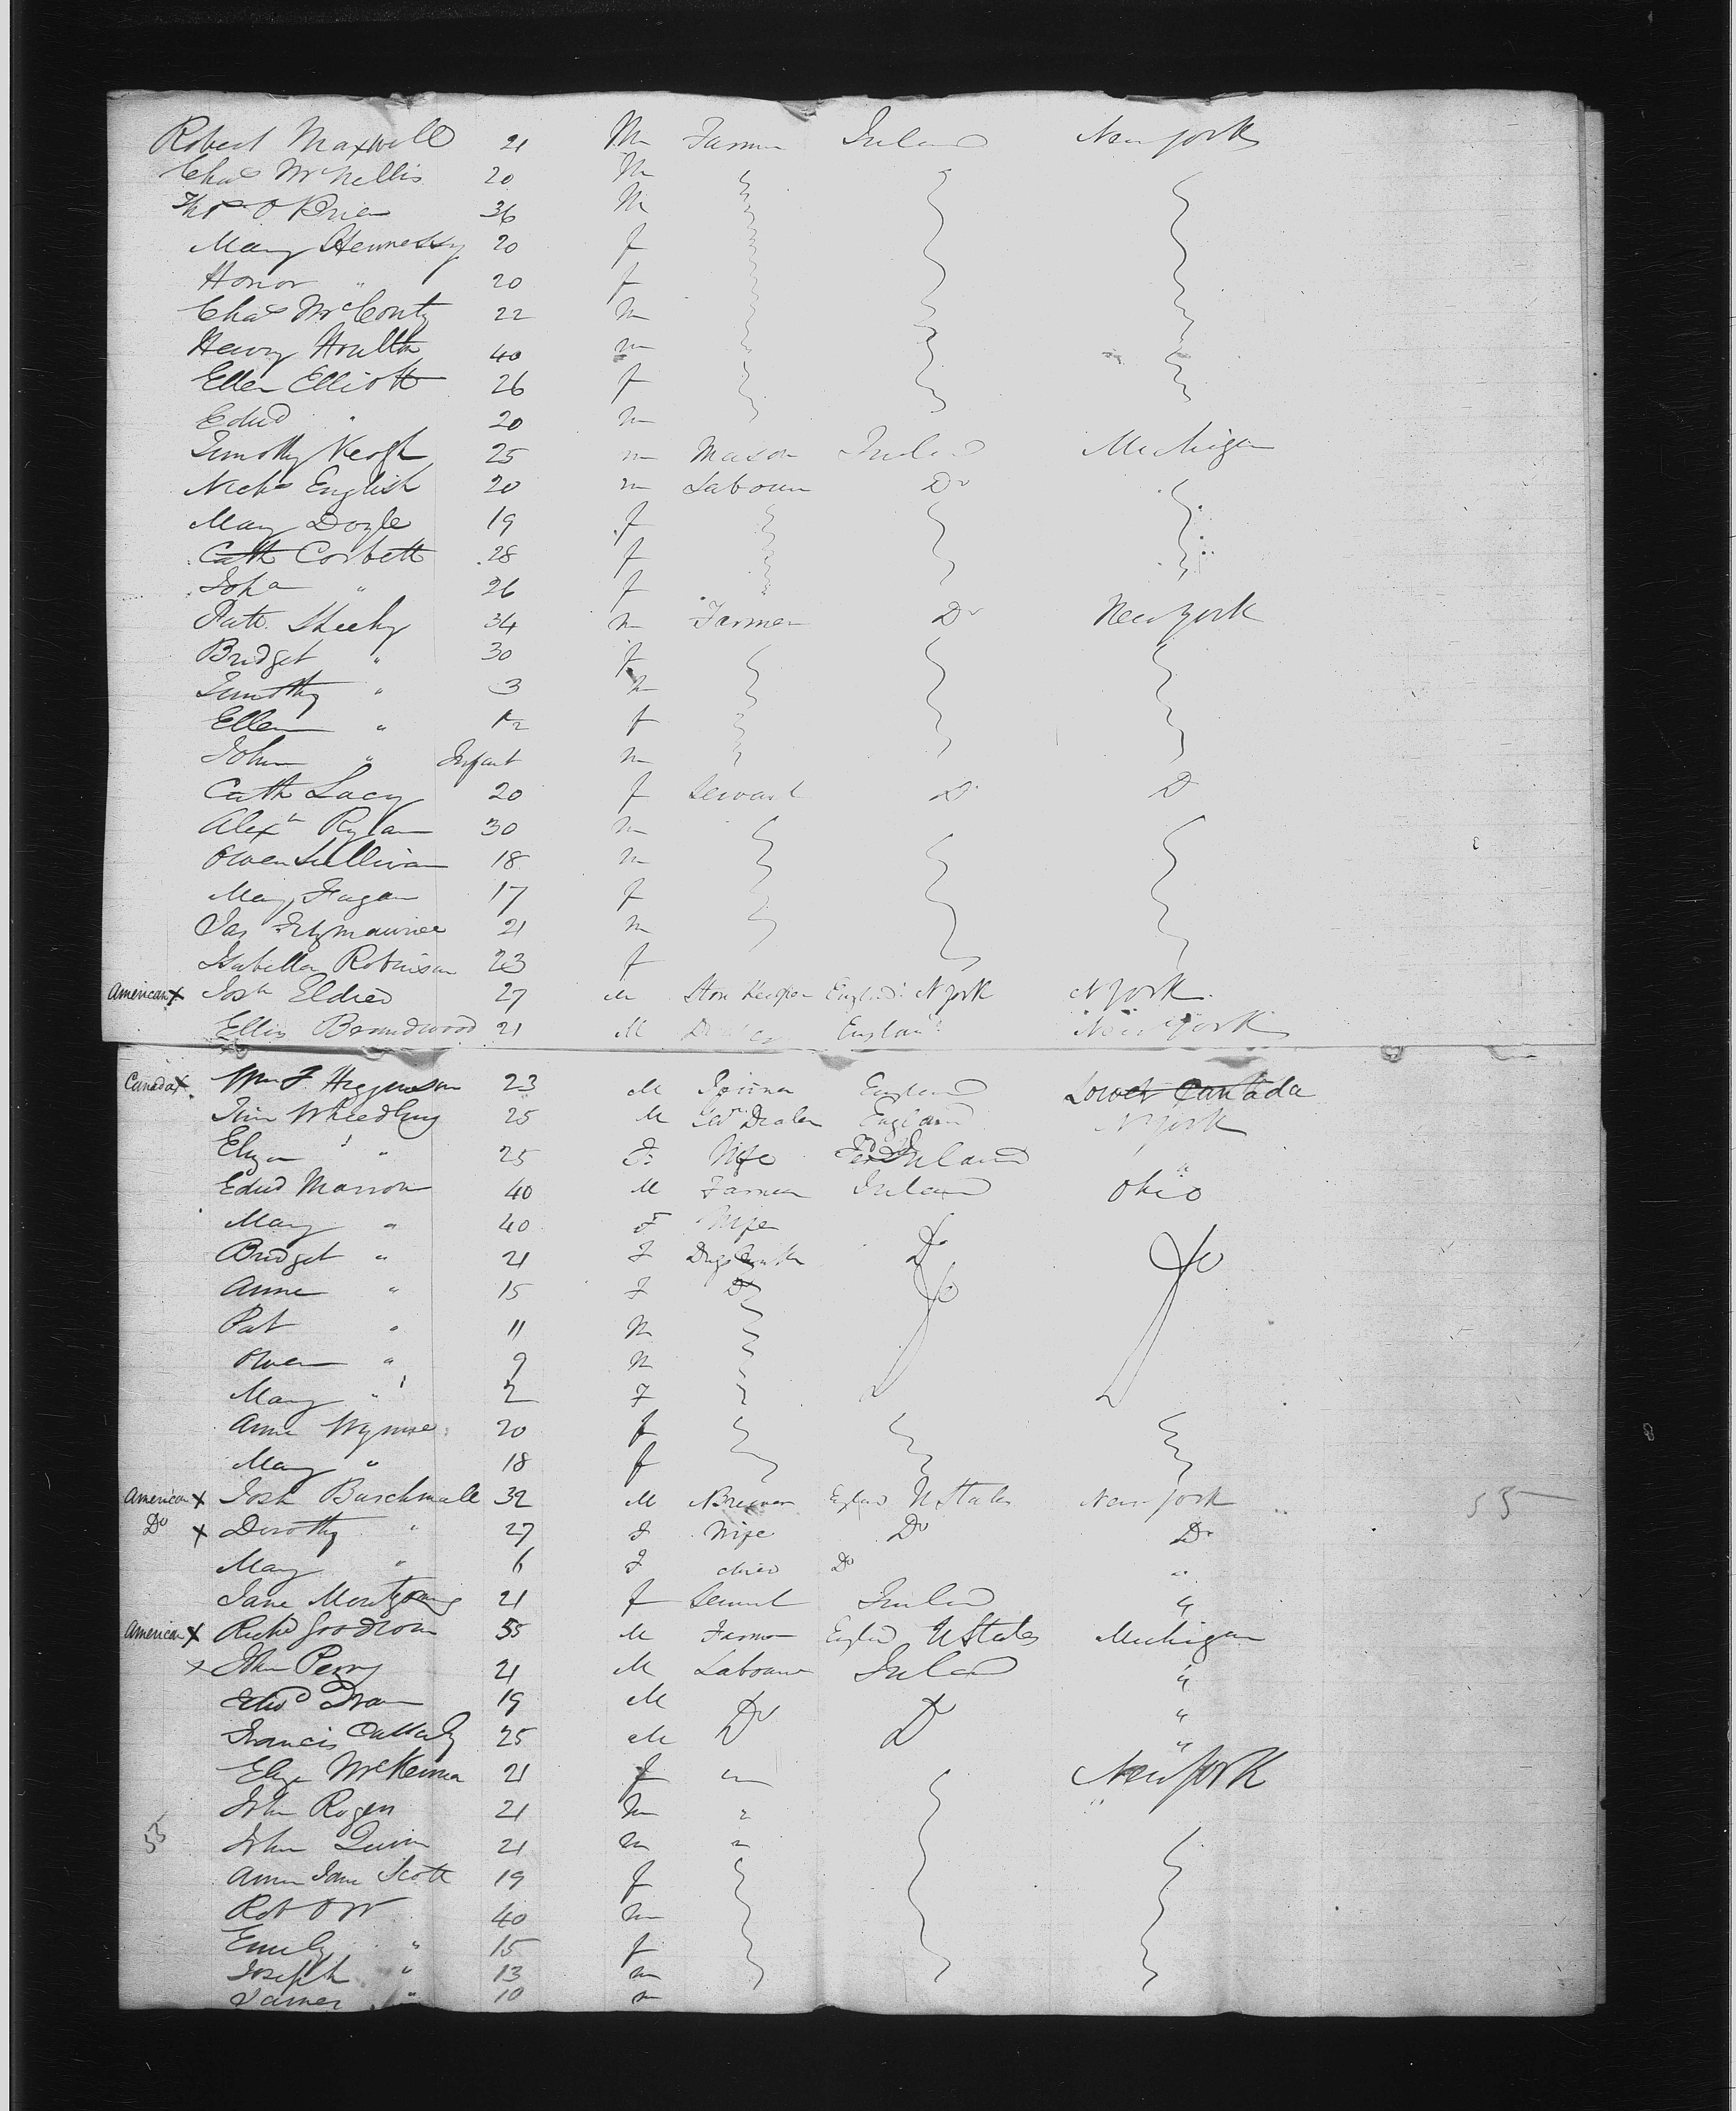 Robert Maxwell 21 M Farmer Ireland New york
Chas McNellis 20 M
Thos O Brien 36 M
Mary Hennessy 20 f
Honor " 20 f
Chas McConty 22 m
Henry 40 m
Ellen Elliott 26 f
Edwd " 20 m
Timothy Keogh 25 m Mason Ireland Michigan
Nichs English 20 m Labourer Do
Mary Doyle 19 f
Cath Corbett 28 f
Joha " 26 f
Patk Sheehy 34 m Farmer Do New york
Bridget " 30 f
Timothy " 3 m
Ellen " f
John " Infant m
Cath Lacy 20 f Servant D D
Alexr Rylan 30 m
Owen Sullivan 18 m
Mary Fagan 17 f
Jas Fitzmaurice 21 m
Isabella Robinson 23 f
American X Josh Eldred 27 M Store Keeper England N york N york
Ellis 21 M England New york
Canada X Wm F Higginson 23 M England Lower Canada
25 M Dealer England N york
Eliza " 25 F Wife Ireland "
Edwd Marron 40 M Farmer Ireland Ohio
Mary " 40 F Wife
Bridget " 21 F Do Do
Anne " 15 F Do Do
Pat " 11 M
Owen " 9 M
Mary " 2 F
Anne Wynne 20 f
Mary " 18 f
American X Josh Burchnall 32 M England U States New york 55
Do X Dorothy " 27 F Wife Do Do
Mary " 6 F child Do "
Jane Montgomery 21 f Servant Ireland "
American X Richd Goodson 55 M Farmer England U States Michigan
X John Perry 21 M Labourer Ireland "
Edwd 19 M Do D "
Francis 25 M "
Eliza McKenna 21 f " New york
John Rogers 21 m " "
55 John Quinn 21 m "
Anne Jane Scott 19 f
Rob Orr 40 m
Emily " 15 f
Joseph " 13 m
James " 10 m